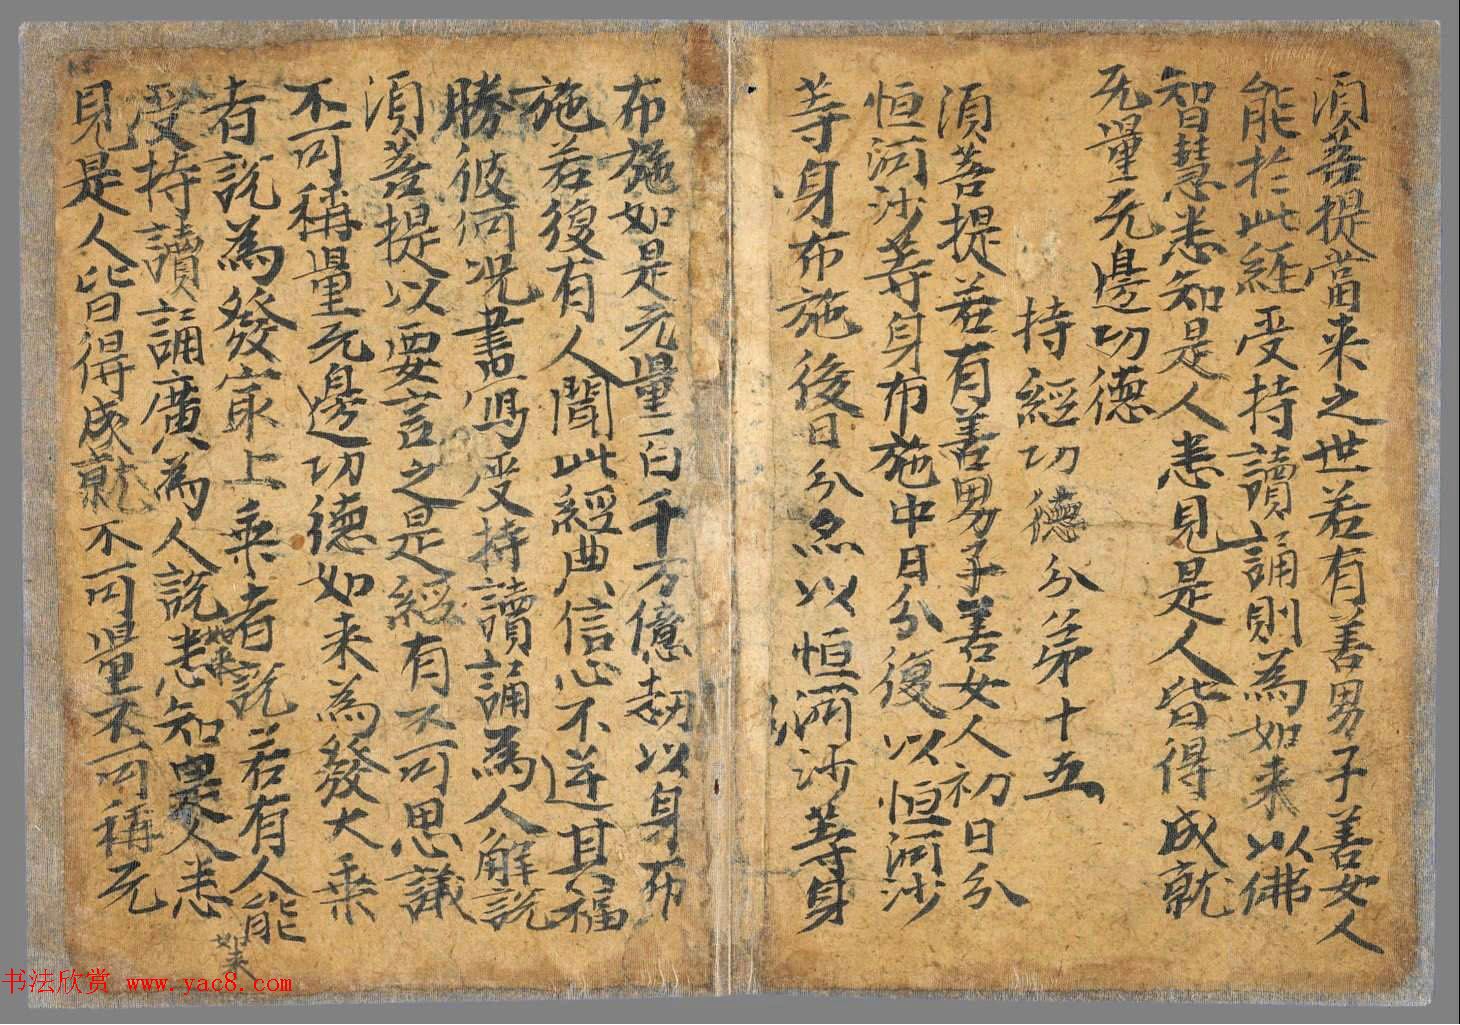 須菩提當来之世若有善男子善女人
能於此經受持讀誦則為如来以佛
智慧悉知是人悉見是人皆得成就
无量无邊功德
持經功德分第十五
須菩提若有善男子善女人初日分
恒河沙等身布施中日分復以恒河沙
等身布施後日分亦以恒河沙等身
布施如是无量百千万億劫以身布
施若復有人聞此經典信心不逆其福
勝彼何况書寫受持讀誦為人解說
須菩提以要言之是經有不可思議
不可稱量无邊功德如来為發大乗
者說為發冣上乗者說若有人能
受持讀誦廣為人說如来悉知是人悉
見是人皆得成就不可量不可稱无
如来
书法欣赏 www.yac8.com